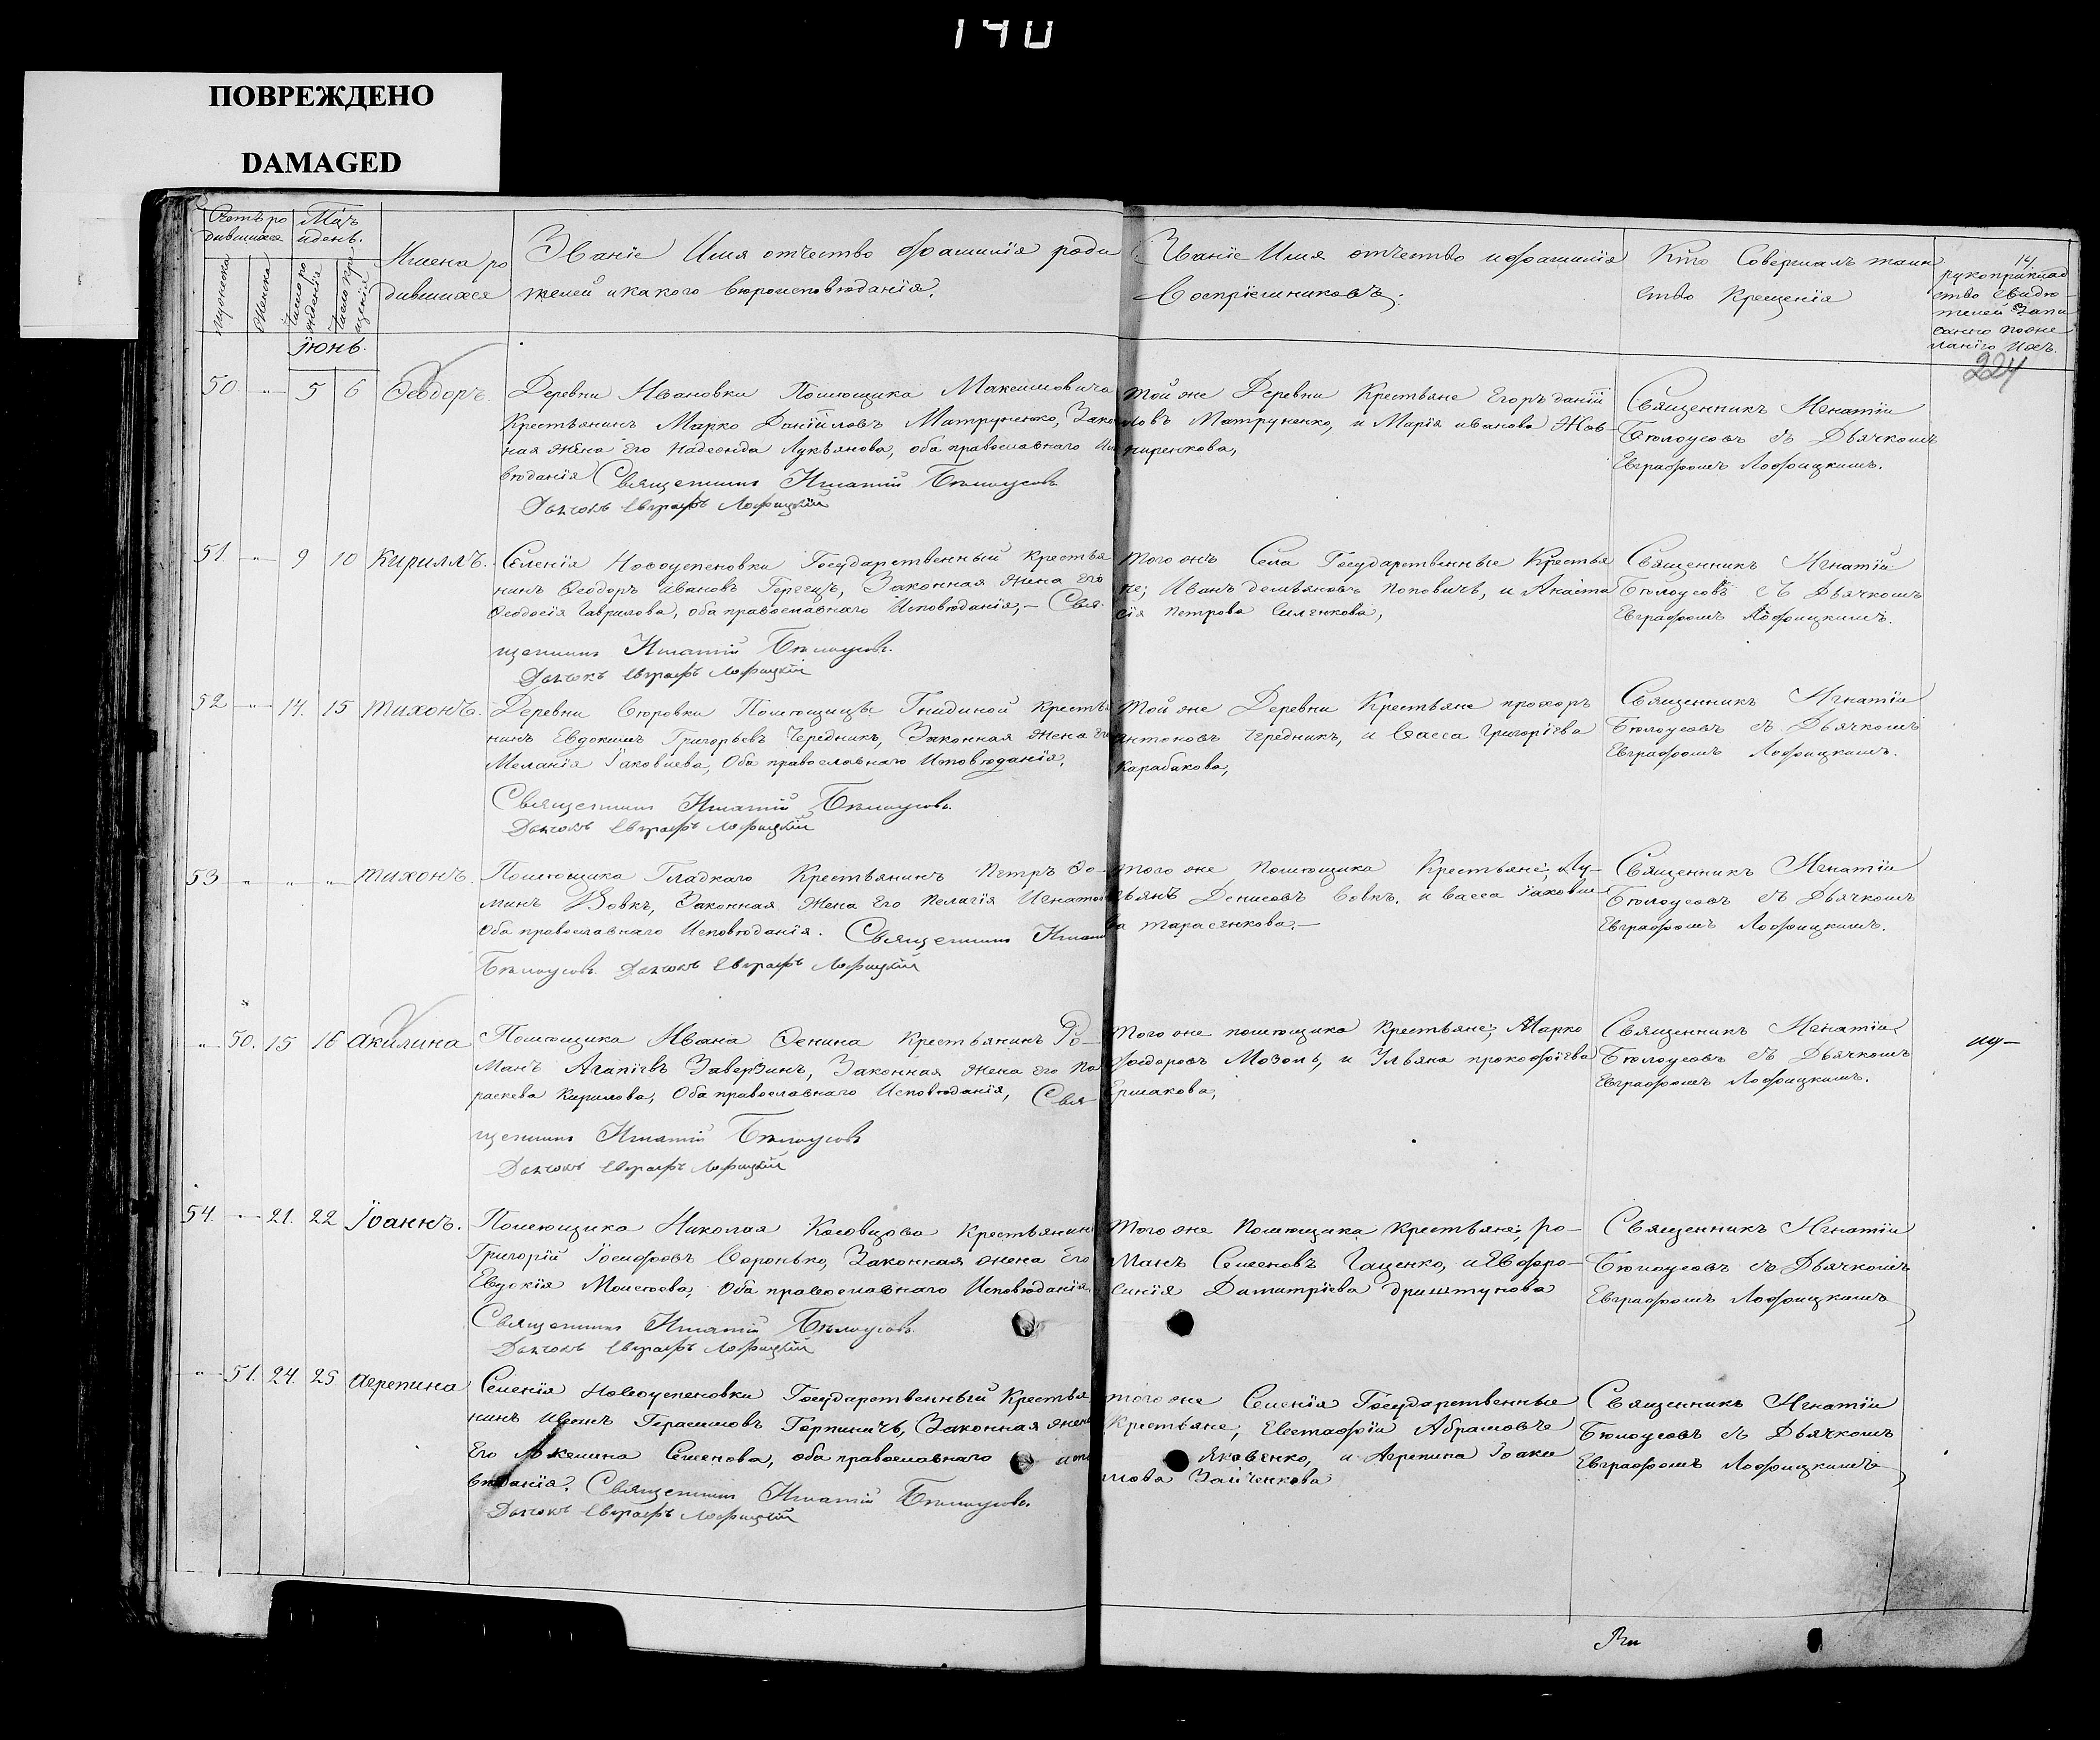 140
ПОВРЕЖДЕНО
DAMAGED
Счетъ ро
дившихся
Мѣс҃цъ
и день.
мужеска
Женска
Число ро
жденія
Число кре
щенія
Имена ро
дившихся
Званіе Имя отчество фамилія роди
телей и какого вѣроисповѣданія.
Званіе Имя отчество и фамилія
Воспріемниковъ.
Кто Совершалъ таин
ство Крещенія
14
рукоприклад
ство свидѣ
телей Запи
саннго по же
ланію ихъ.
224
Іюнь.
50 " 5 6 Ѳеодоръ.
Деревни Ивановки Помѣщика Максимовича
Крестьянинъ Марко Даніиловъ Матруненко, Закон
ная жена Его Надежда Лукьянова, оба православнаго Ис
вѣданія Священникъ Игнатій Бѣлоусовъ
Дьячокъ Евграфъ Лофицкій
той же Деревни Крестьяне Егоръ даній
ловъ Матруненко, и Марія иванова Жов-
ниренкова,
Священникъ Игнатій
Бѣлоусовъ съ Дьячкомъ
Евграфомъ Лофицкимъ.
51. " 9 10 Кириллъ.
Селенія Новоуспеновки Государственный Крестья
нинъ Ѳеодоръ Ивановъ Герегъ, Законная жена Его
Ѳеодосія Гаврилова, оба православнаго Исповѣданія, – Свя
щенникъ Игнатій Бѣлоусовъ.
Дьячокъ Евграфъ Лофицкій
того жъ Села Государственные Крестья
не; Иванъ демьяновъ Поповичъ, и Анаста
сія Петрова Силенкова,
Священникъ Игнатій
Бѣлоусовъ съ Дьячкомъ
Евграфомъ Лофицкимъ.
52 " 14. 15 Тихонъ.
Деревни Сюровки Помѣщицы Гнидиной Кресть
нинъ Евдокимъ Григорьевъ Чередникъ, Законная жена Его
Меланія Іаковлева, Оба православнаго Исповѣданія,
Священникъ Игнатій Бѣлоусовъ.
Дьячокъ Евграфъ Лофицкій
той же Деревни Крестьяне прохоръ
Антоновъ Чередникъ, и Васса Григоріева
Карабакова,
Священникъ Игнатій
Бѣлоусовъ съ Дьячкомъ
Евграфомъ Лофицкимъ.
53 " " " Тихонъ.
Помѣщика Гладкаго Крестьянинъ Петръ Ѳо-
минъ Вовкъ, Законная Жена Его Пелагія Игнатов
Оба православнаго Исповѣданія. Священникъ Игнат
Бѣлоусовъ Дьячокъ Евграфъ Лофицкій
того же Помѣщика Крестьяне; Лу-
кьянъ Денисовъ Вовкъ, и Васса Іаковле
ва тарасенкова.–
Священникъ Игнатій
Бѣлоусовъ съ Дьячкомъ
Евграфомъ Лофицкимъ.
" 50. 15 16 Акилина
Помѣщика Ивана Ѳенина Крестьянинъ Ро-
манъ Агапіевъ Заверзинъ, Законная Жена Его Па
раскева Кирилова; Оба православнаго Исповѣданія, Свя
щенникъ Игнатій Бѣлоусовъ
Дьячокъ Евграфъ Лофицкій
того же помѣщика Крестьяне; Марко
Ѳеодоровъ Мозоль, и Ульяна прокофіева
Ермакова,
Священникъ Игнатій
Бѣлоусовъ съ Дьячкомъ
Евграфомъ Лофицкимъ.
54. " 21. 22 Іоаннъ.
Помѣщика Николая Косовцова Крестьянинъ
Григорій Іосифовъ Воронько, Законная жена Его
Евдокія Моисѣева, Оба православнаго Исповѣданія.
Священникъ Игнатій Бѣлоусовъ.
Дьячокъ Евграфъ Лофицкій
того же Помѣщика Крестьяне; ро-
манъ Семеновъ Гаценко, и Евфро-
синія Димитріева дриштунова
Священникъ Игнатій
Бѣлоусовъ съ Дьячкомъ
Евграфомъ Лофицкимъ
" 51. 24. 25 Агрепина
Селенія Новоуспеновки Государственный Крестья
нинъ Иванъ Герасимовъ Горпиничъ, Законная жена
Его Акелина Семенова, оба православнаго испо
вѣданія. Священникъ Игнатій Бѣлоусовъ.
Дьячокъ Евграфъ Лофицкій
того же Селенія Государственные
Крестьяне; Евстафій Абрамовъ
Яковенко, и Агрепина Іоаки
мова Зайченкова
Священникъ Игнатій
Бѣлоусовъ съ Дьячкомъ
Евграфомъ Лофицкимъ